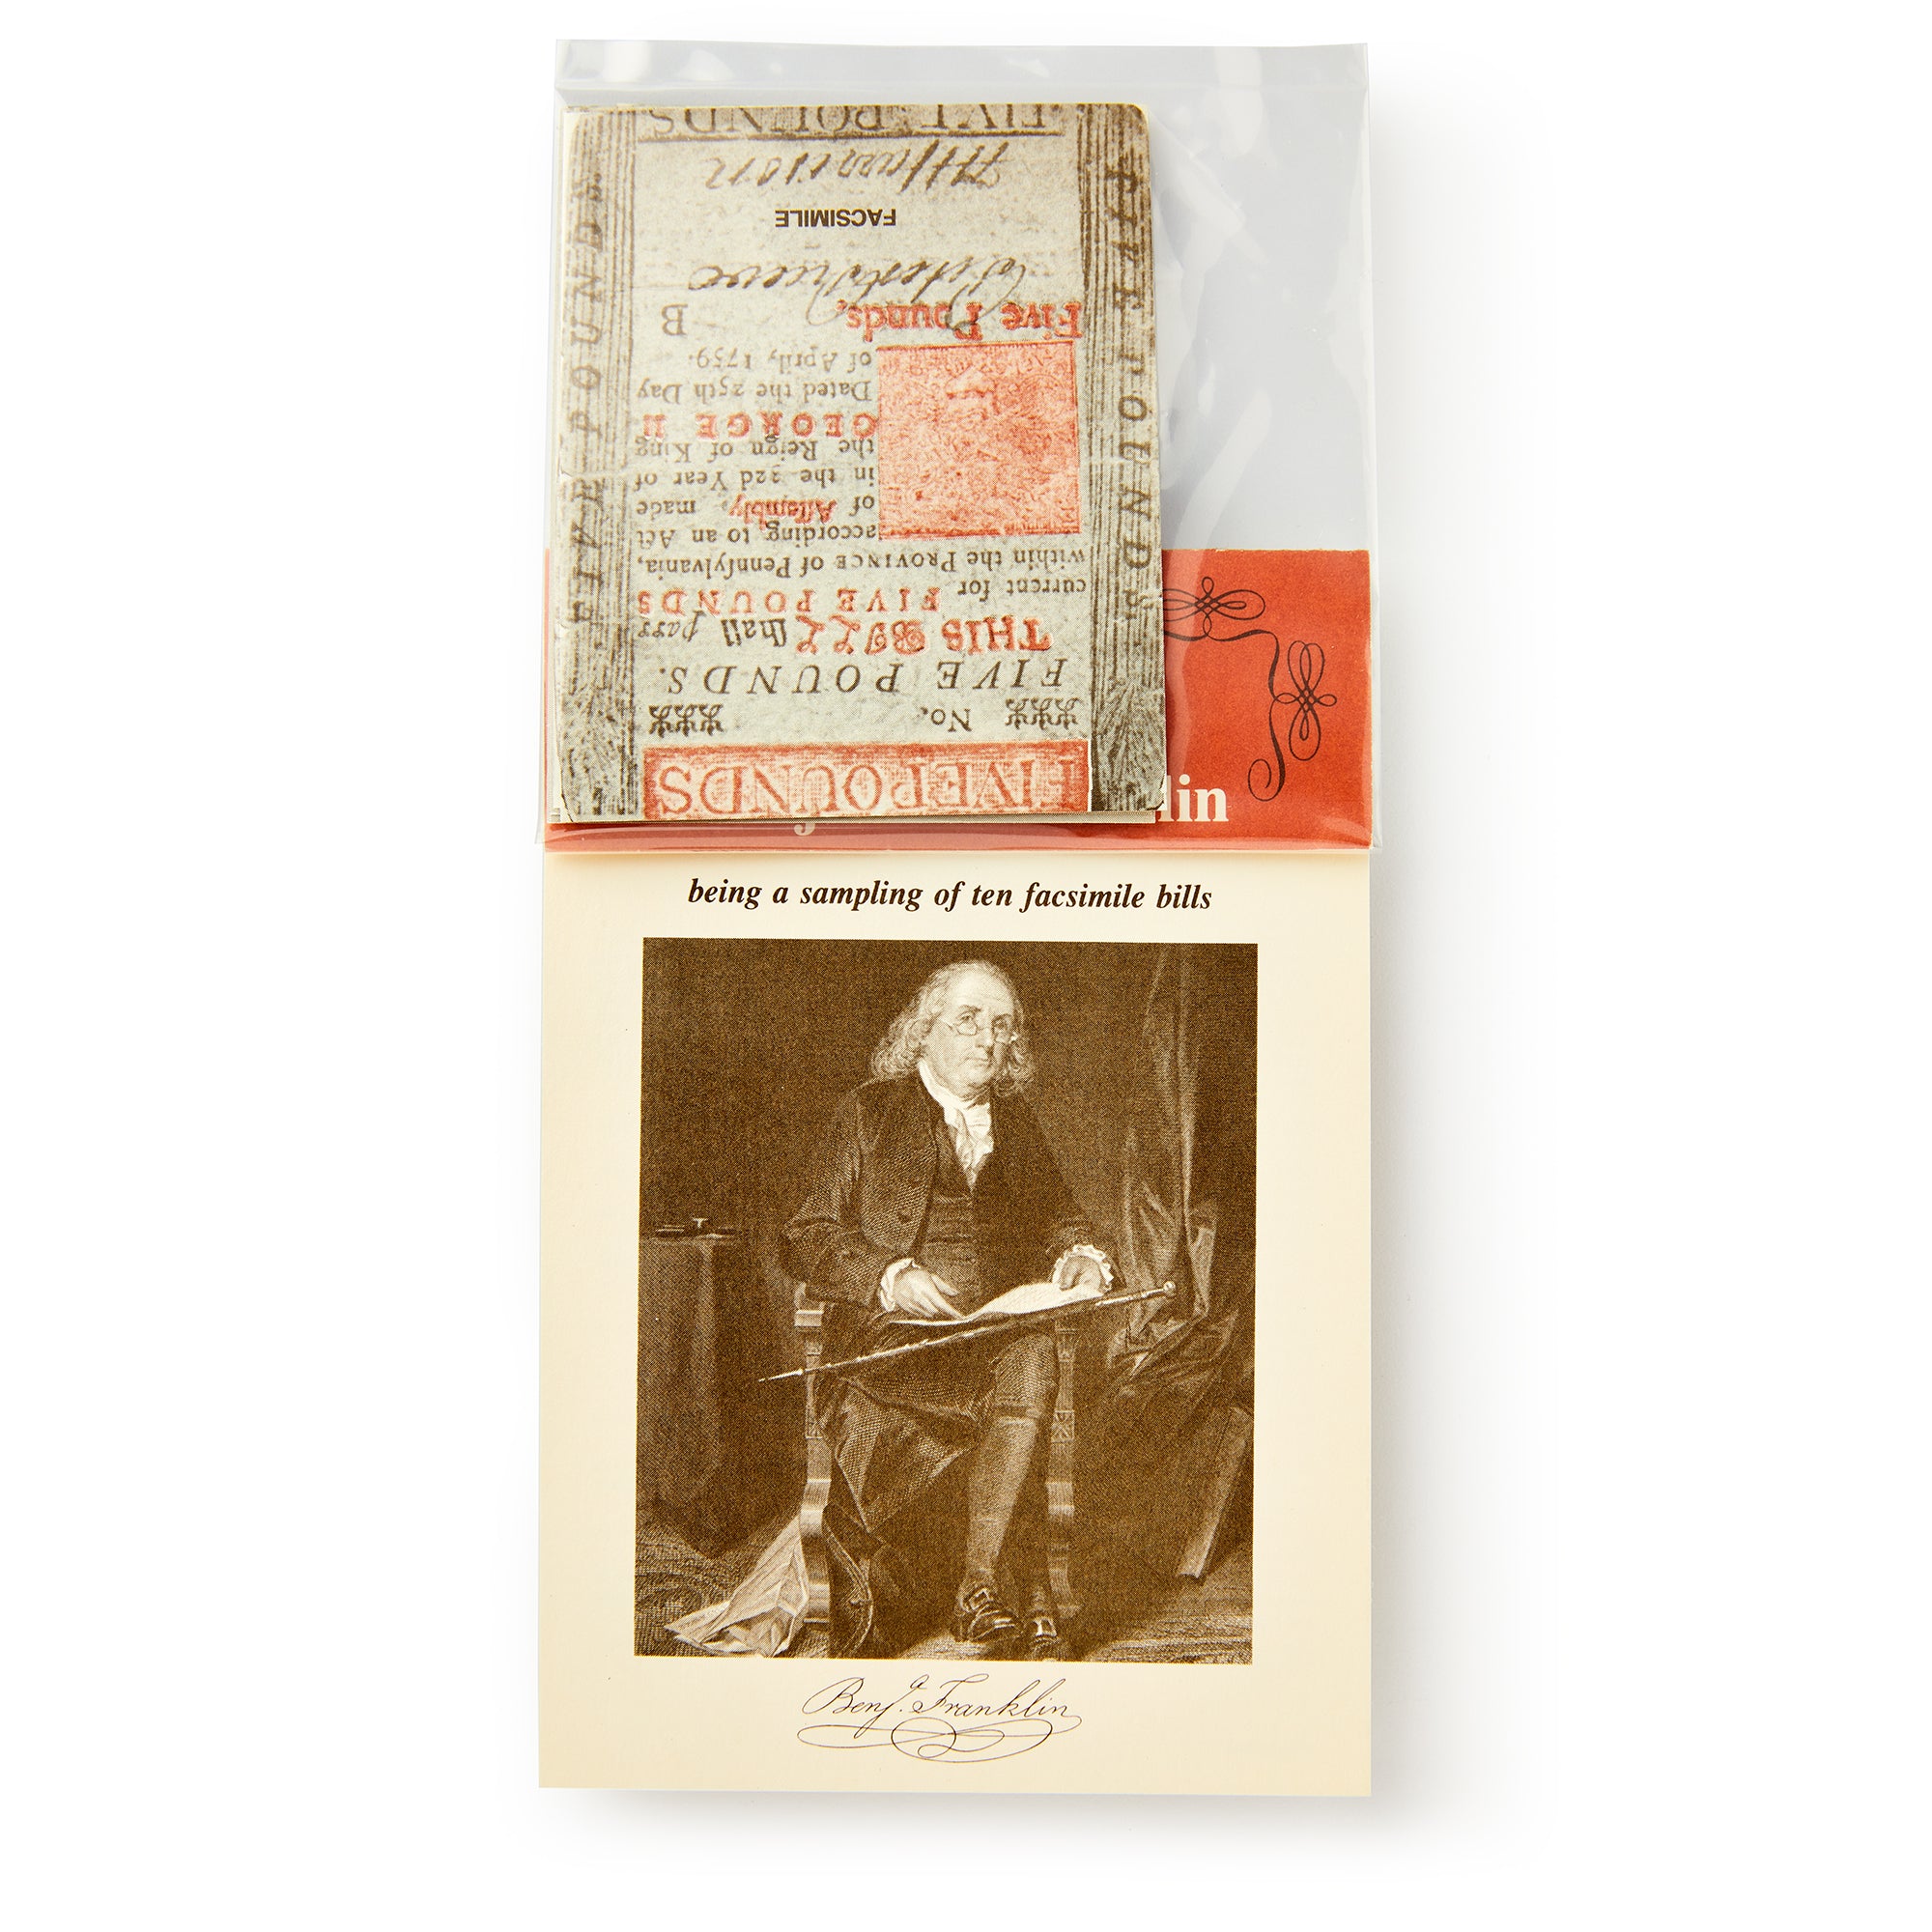 FIVE POUNDS
No.
FIVE POUNDS.
THIS BILL shall pass
current for FIVE POUNDS
within the PROVINCE of Pennsylvania,
according to an Act
of Assembly, made
in the 32d Year of
the Reign of King
GEORGE II
Dated the 25th Day
of April, 1759.
Five Pounds, B
FACSIMILE
FIVE POUNDS
FIVE POUNDS
FIVE POUNDS
lin
being a sampling of ten facsimile bills
Benj. Franklin